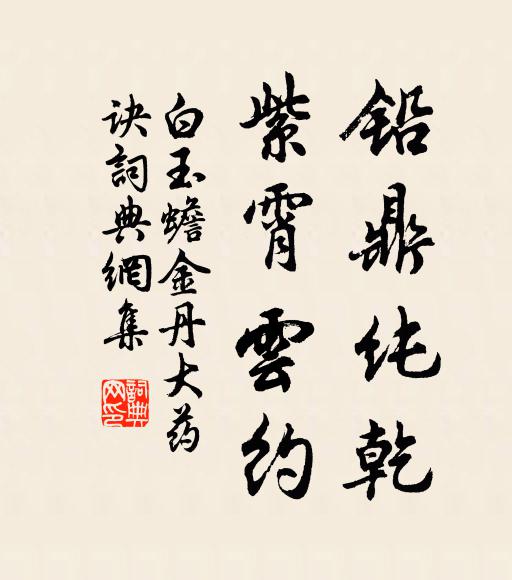 铅鼎纯乾
紫霄雲約
白玉蟾金丹大药
诀詞典網集
詞典
网印